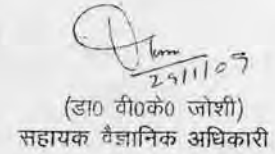 29/11/07
(डा0 वी0के0 जोशी)
सहायक वैज्ञानिक अधिकारी